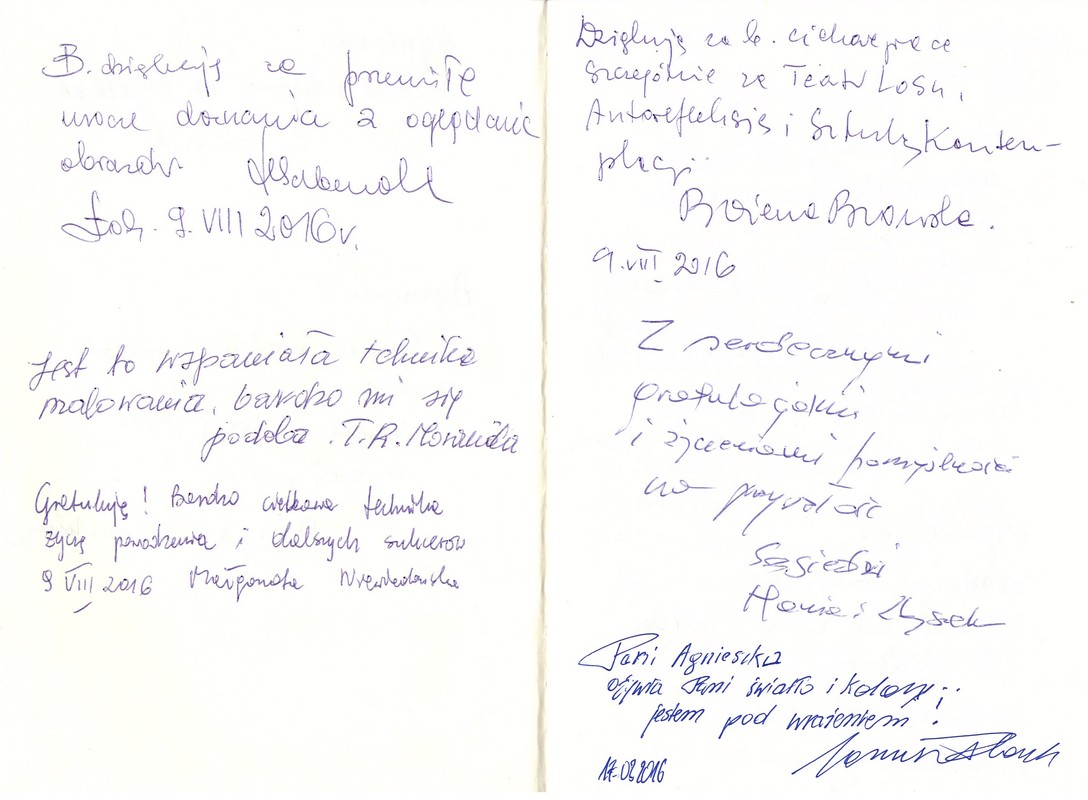 B. dziękuję za przemiłe
urocze doznania z oglądanie
obrazów
Łódź. 9. VIII 2016r.
Jest to wspaniała technika
malowania, bardzo mi się
podoba. T.R.
Gratuluję! Bardzo ciekawa technika
życzę powodzenia i dalszych sukcesów
9 VIII 2016 Małgorzata
Dziękuję za b. ciekawe prace
szczególnie za Teatr Losu,
Autorefleksję i Sztukę Kontem-
placji
Bożena
9. VIII 2016
Z serdecznymi
gratulacjami
i życzeniami pomyślności
na przyszłość
Sąsiedzi
Hania i Zbyszek
Pani Agnieszko
ożywia Pani światło i kolory..
jestem pod wrażeniem!
17.08.2016